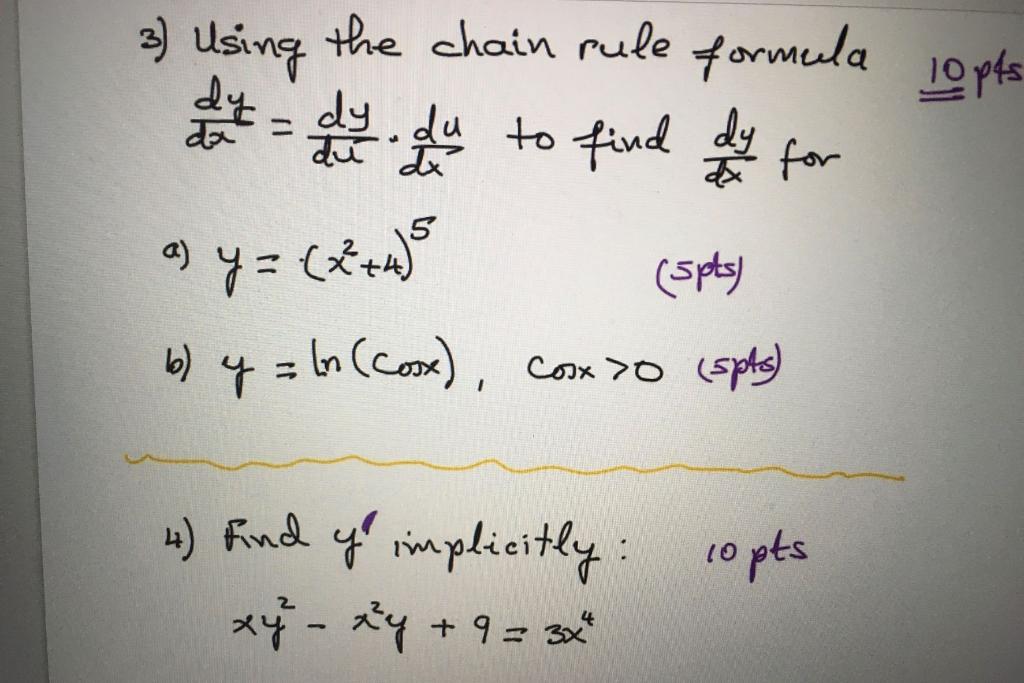 3) Using the chain rule formula 10 pts
dy/dx = dy/du · du/dx to find dy/dx for
a) y = (x²+4)⁵ (5pts)
b) y = ln(cosx), cosx>0 (5pts)
4) Find y' implicitly: 10 pts
xy² - x²y + 9 = 3x⁴